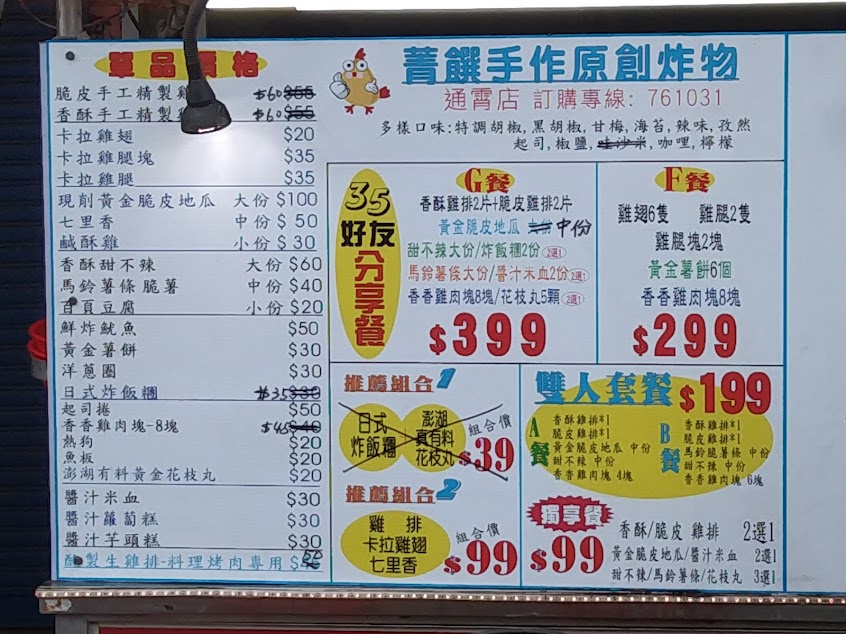 單品價格
脆皮手工精製雞 $60 $55
香酥手工精製雞 $60 $55
卡拉雞翅 $20
卡拉雞腿塊 $35
卡拉雞腿 $35
現削黃金脆皮地瓜 大份 $100
七里香 中份 $50
鹹酥雞 小份 $30
香酥甜不辣 大份 $60
馬鈴薯條脆薯 中份 $40
百頁豆腐 小份 $20
鮮炸魷魚 $50
黃金薯餅 $30
洋蔥圈 $30
日式炸飯糰 $35 $30
起司捲 $50
香香雞肉塊-8塊 $45 $40
熱狗 $20
魚板 $20
澎湖有料黃金花枝丸 $20
醬汁米血 $30
醬汁蘿蔔糕 $30
醬汁芋頭糕 $30
醃製生雞排-料理烤肉專用 50
菁饌手作原創炸物
通霄店 訂購專線: 761031
多樣口味:特調胡椒,黑胡椒,甘梅,海苔,辣味,孜然
起司,椒鹽,哇沙米,咖哩,檸檬
35好友分享餐
G餐
香酥雞排2片+脆皮雞排2片
黃金脆皮地瓜 中份
甜不辣大份/炸飯糰2份 2選1
馬鈴薯條大份/醬汁米血2份 2選1
香香雞肉塊8塊/花枝丸5顆 2選1
$399
F餐
雞翅6隻 雞腿2隻
雞腿塊2塊
黃金薯餅6個
香香雞肉塊8塊
$299
推薦組合1
日式炸飯糰
澎湖真有料花枝丸
組合價 $39
推薦組合2
雞排
卡拉雞翅
七里香
組合價 $99
雙人套餐 $199
A餐
香酥雞排*1
脆皮雞排*1
黃金脆皮地瓜 中份
甜不辣 中份
香香雞肉塊 4塊
B餐
香酥雞排*1
脆皮雞排*1
馬鈴脆薯條 中份
甜不辣 中份
香香雞肉塊 6塊
獨享餐
$99
香酥/脆皮 雞排 2選1
黃金脆皮地瓜/醬汁米血 2選1
甜不辣/馬鈴薯條/花枝丸 3選1